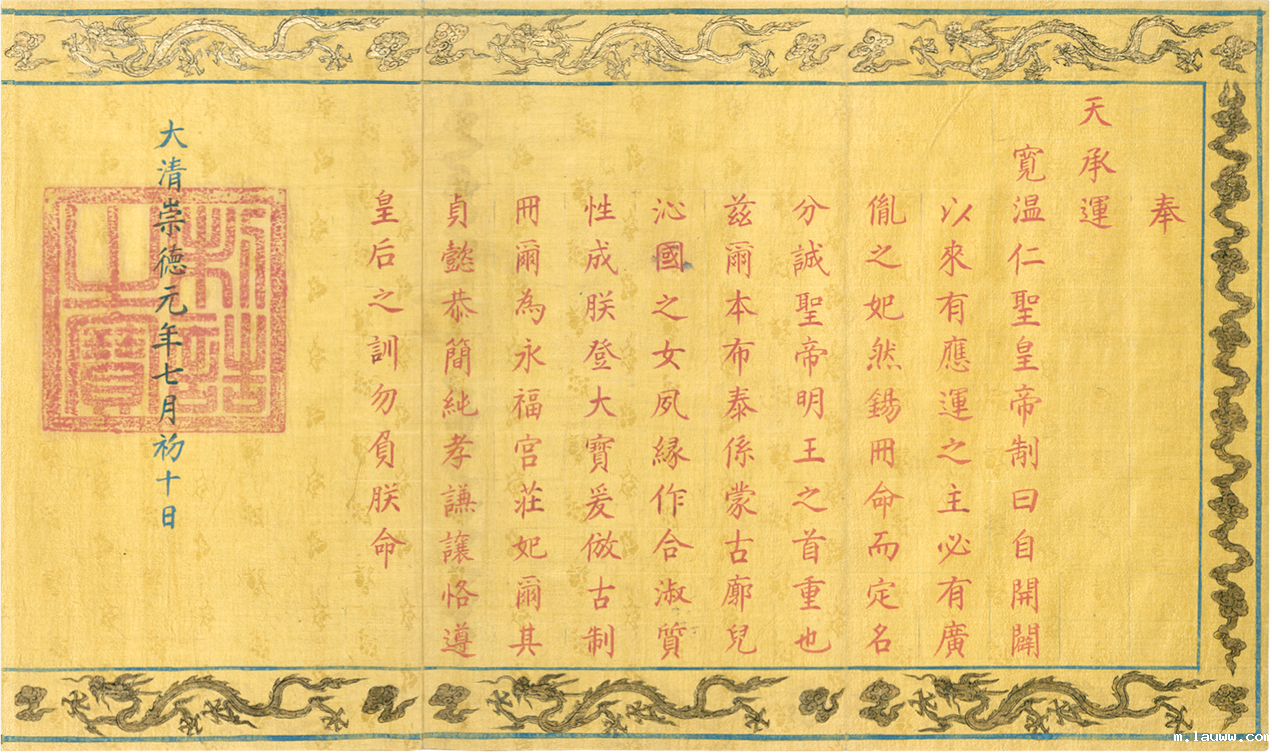 奉
天承運
寬温仁聖皇帝制曰自開闢
以來有應運之主必有廣
胤之妃然錫冊命而定名
分誠聖帝明王之首重也
兹爾本布泰係蒙古廓兒
沁國之女夙緣作合淑質
性成朕登大寶爰倣古制
冊爾為永福宮莊妃爾其
貞懿恭簡純孝謙讓恪遵
皇后之訓勿負朕命
大清崇德元年七月初十日
m.lauww.com